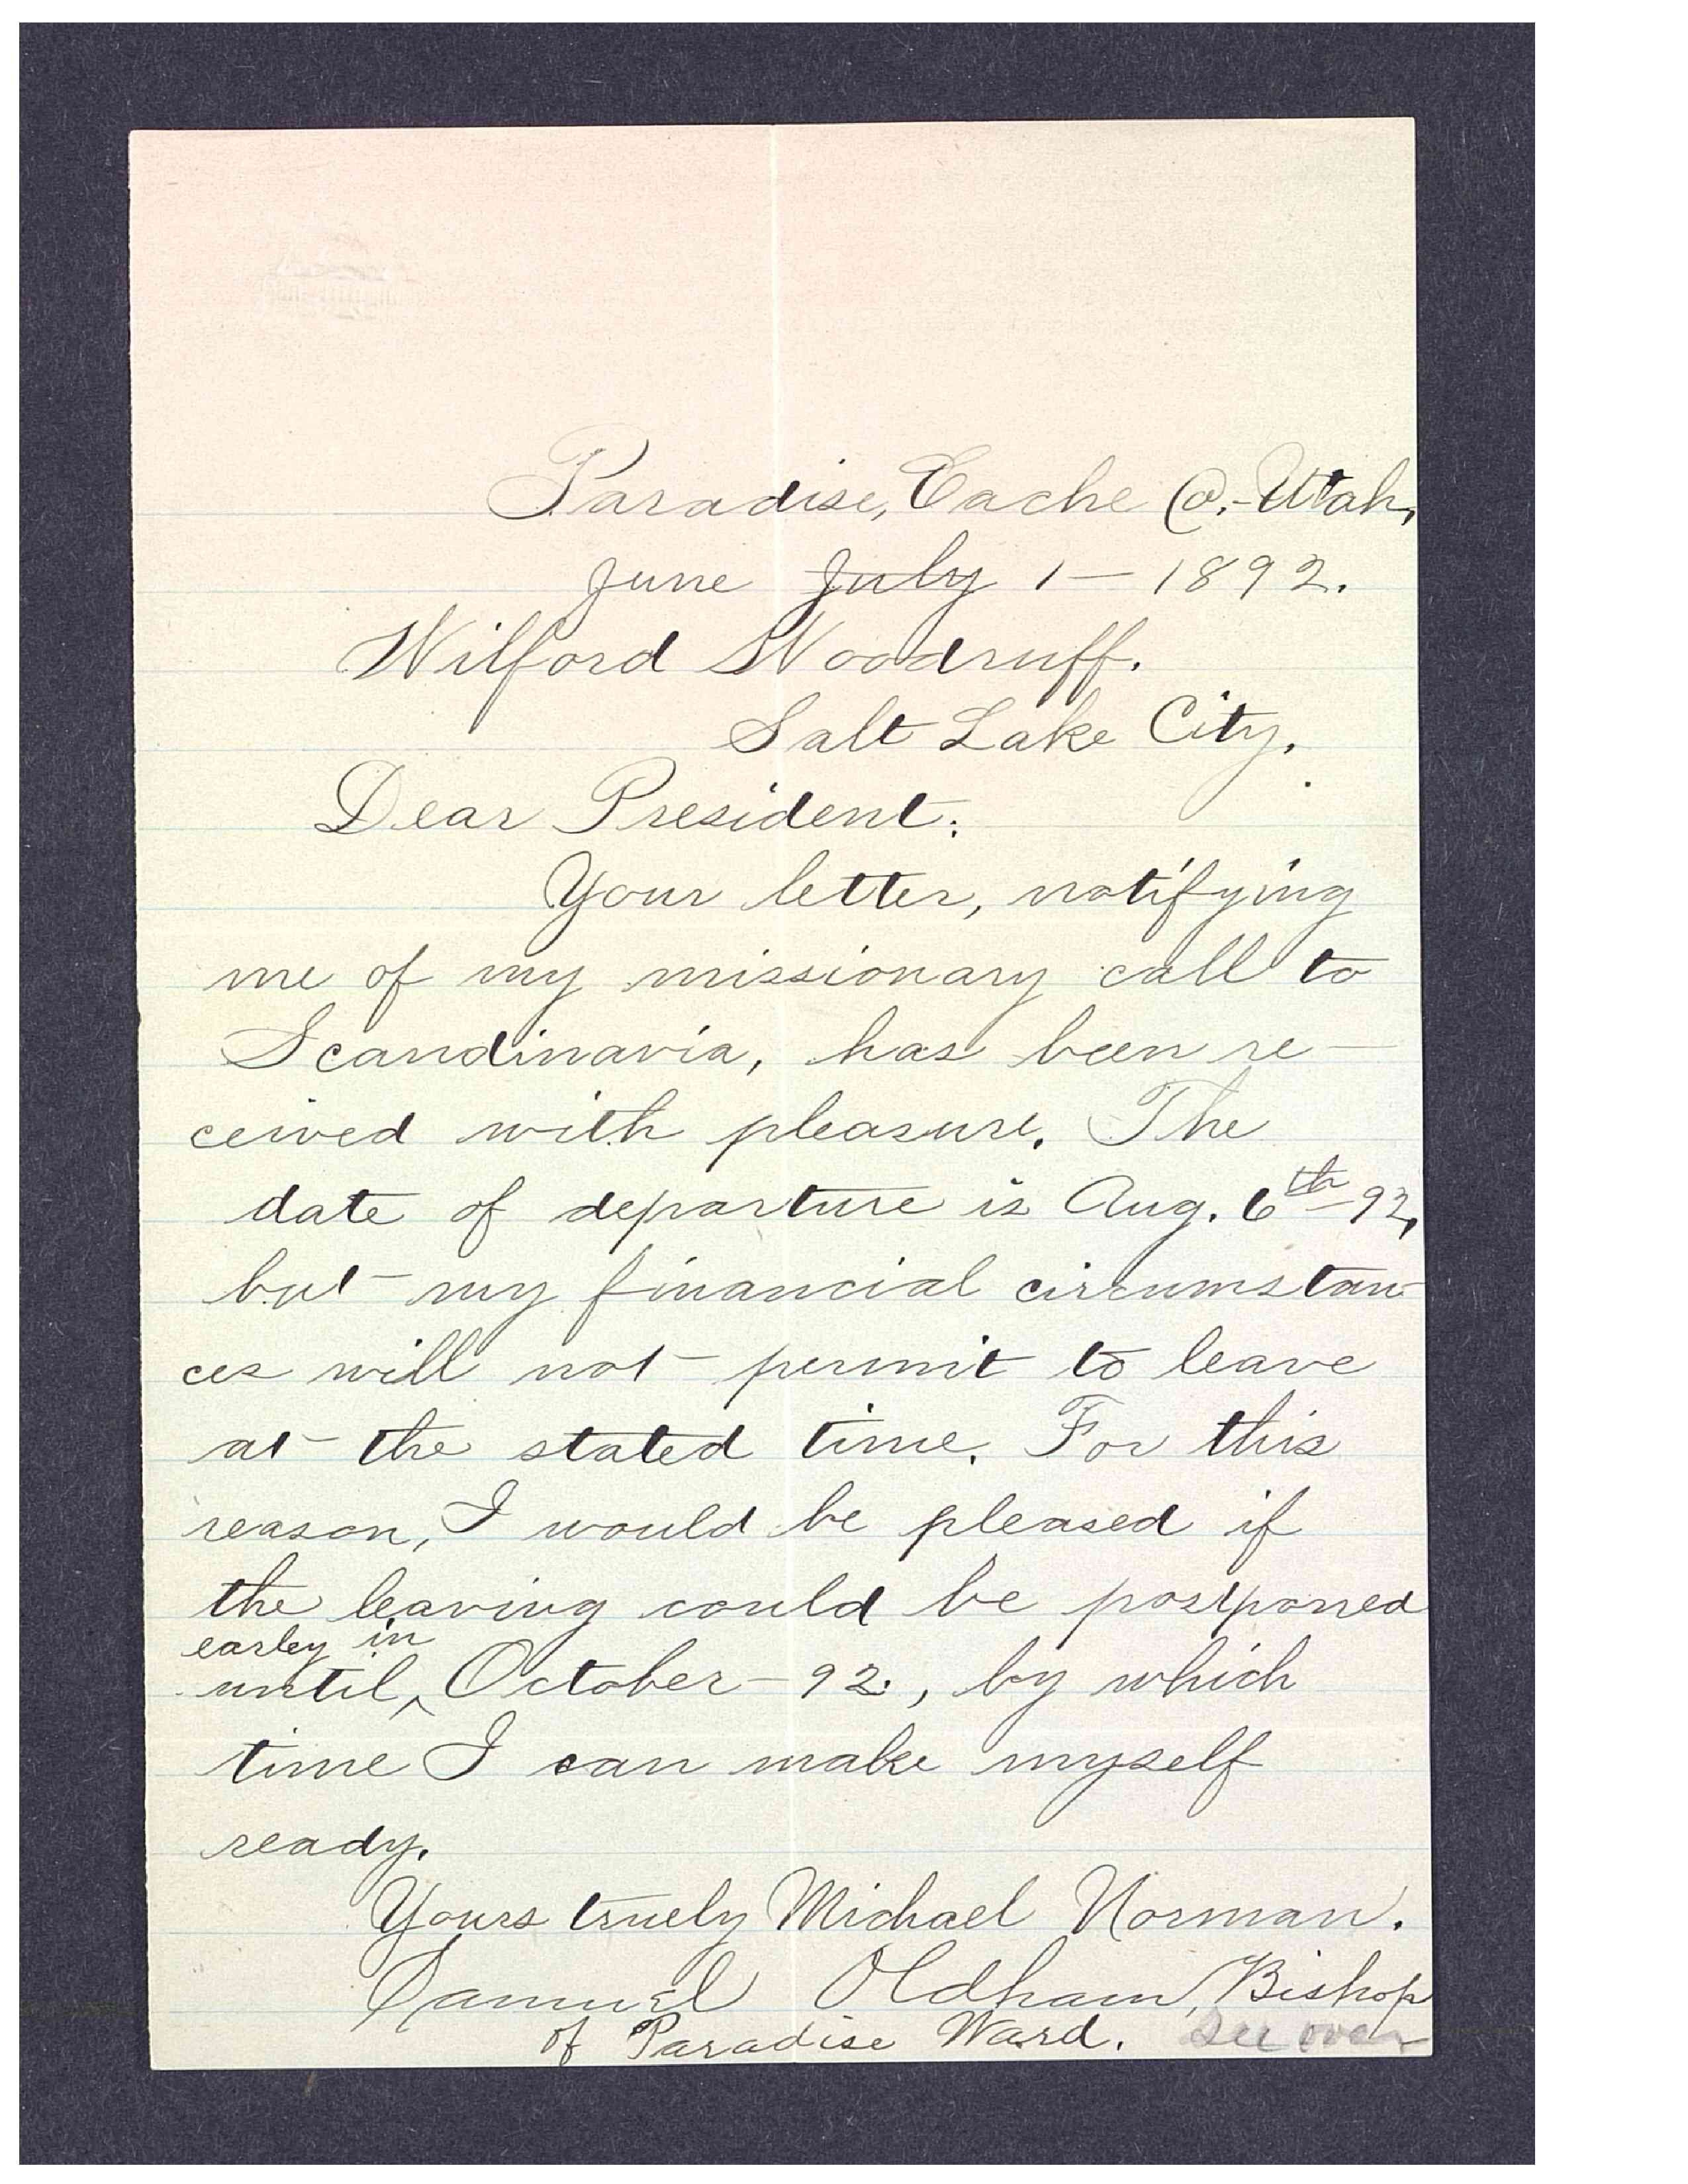 Paradise, Cache Co.-Utah,
June July 1 — 1892.
Wilford Woodruff.
Salt Lake City.
Dear President:
Your letter, notifying
me of my missionary call to
Scandinavia, has been re-
ceived with pleasure. The
date of departure is Aug. 6th-92,
but my financial circumstan-
ces will not permit to leave
at the stated time. For this
reason, I would be pleased if
the leaving could be postponed
earley in
until ^ October-92., by which
time I can make myself
ready.
Yours truely Michael Norman.
Samuel Oldham, Bishop
of Paradise Ward. See over